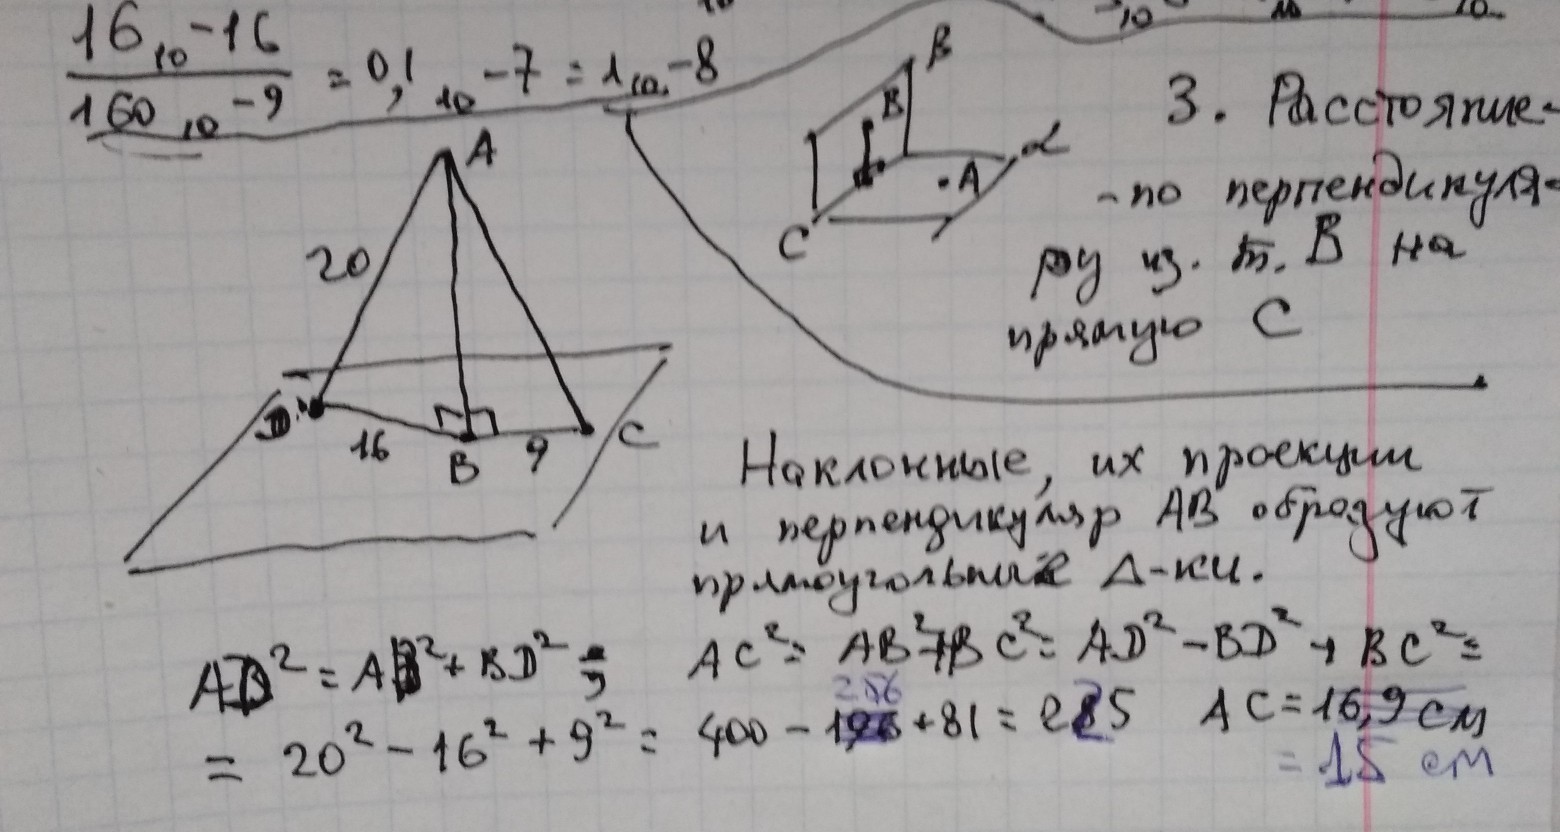 16₁₀-16
160₁₀-9
= 0,1₁₀-7 = 1₁₀-8
B
B
α
A
C
3. Расстояние-
-по перпендикуля-
ру из. т. B на
прямую C
A
20
D
16
B
9
C
Наклонные, их проекции
и перпендикуляр AB образуют
прямоугольные Δ-ки.
AD² = AB² + BD² ;
AC² = AB² + BC² = AD² - BD² + BC² =
= 20² - 16² + 9² = 400 - 256 + 81 = 225
AC = 16,9 см
= 15 см